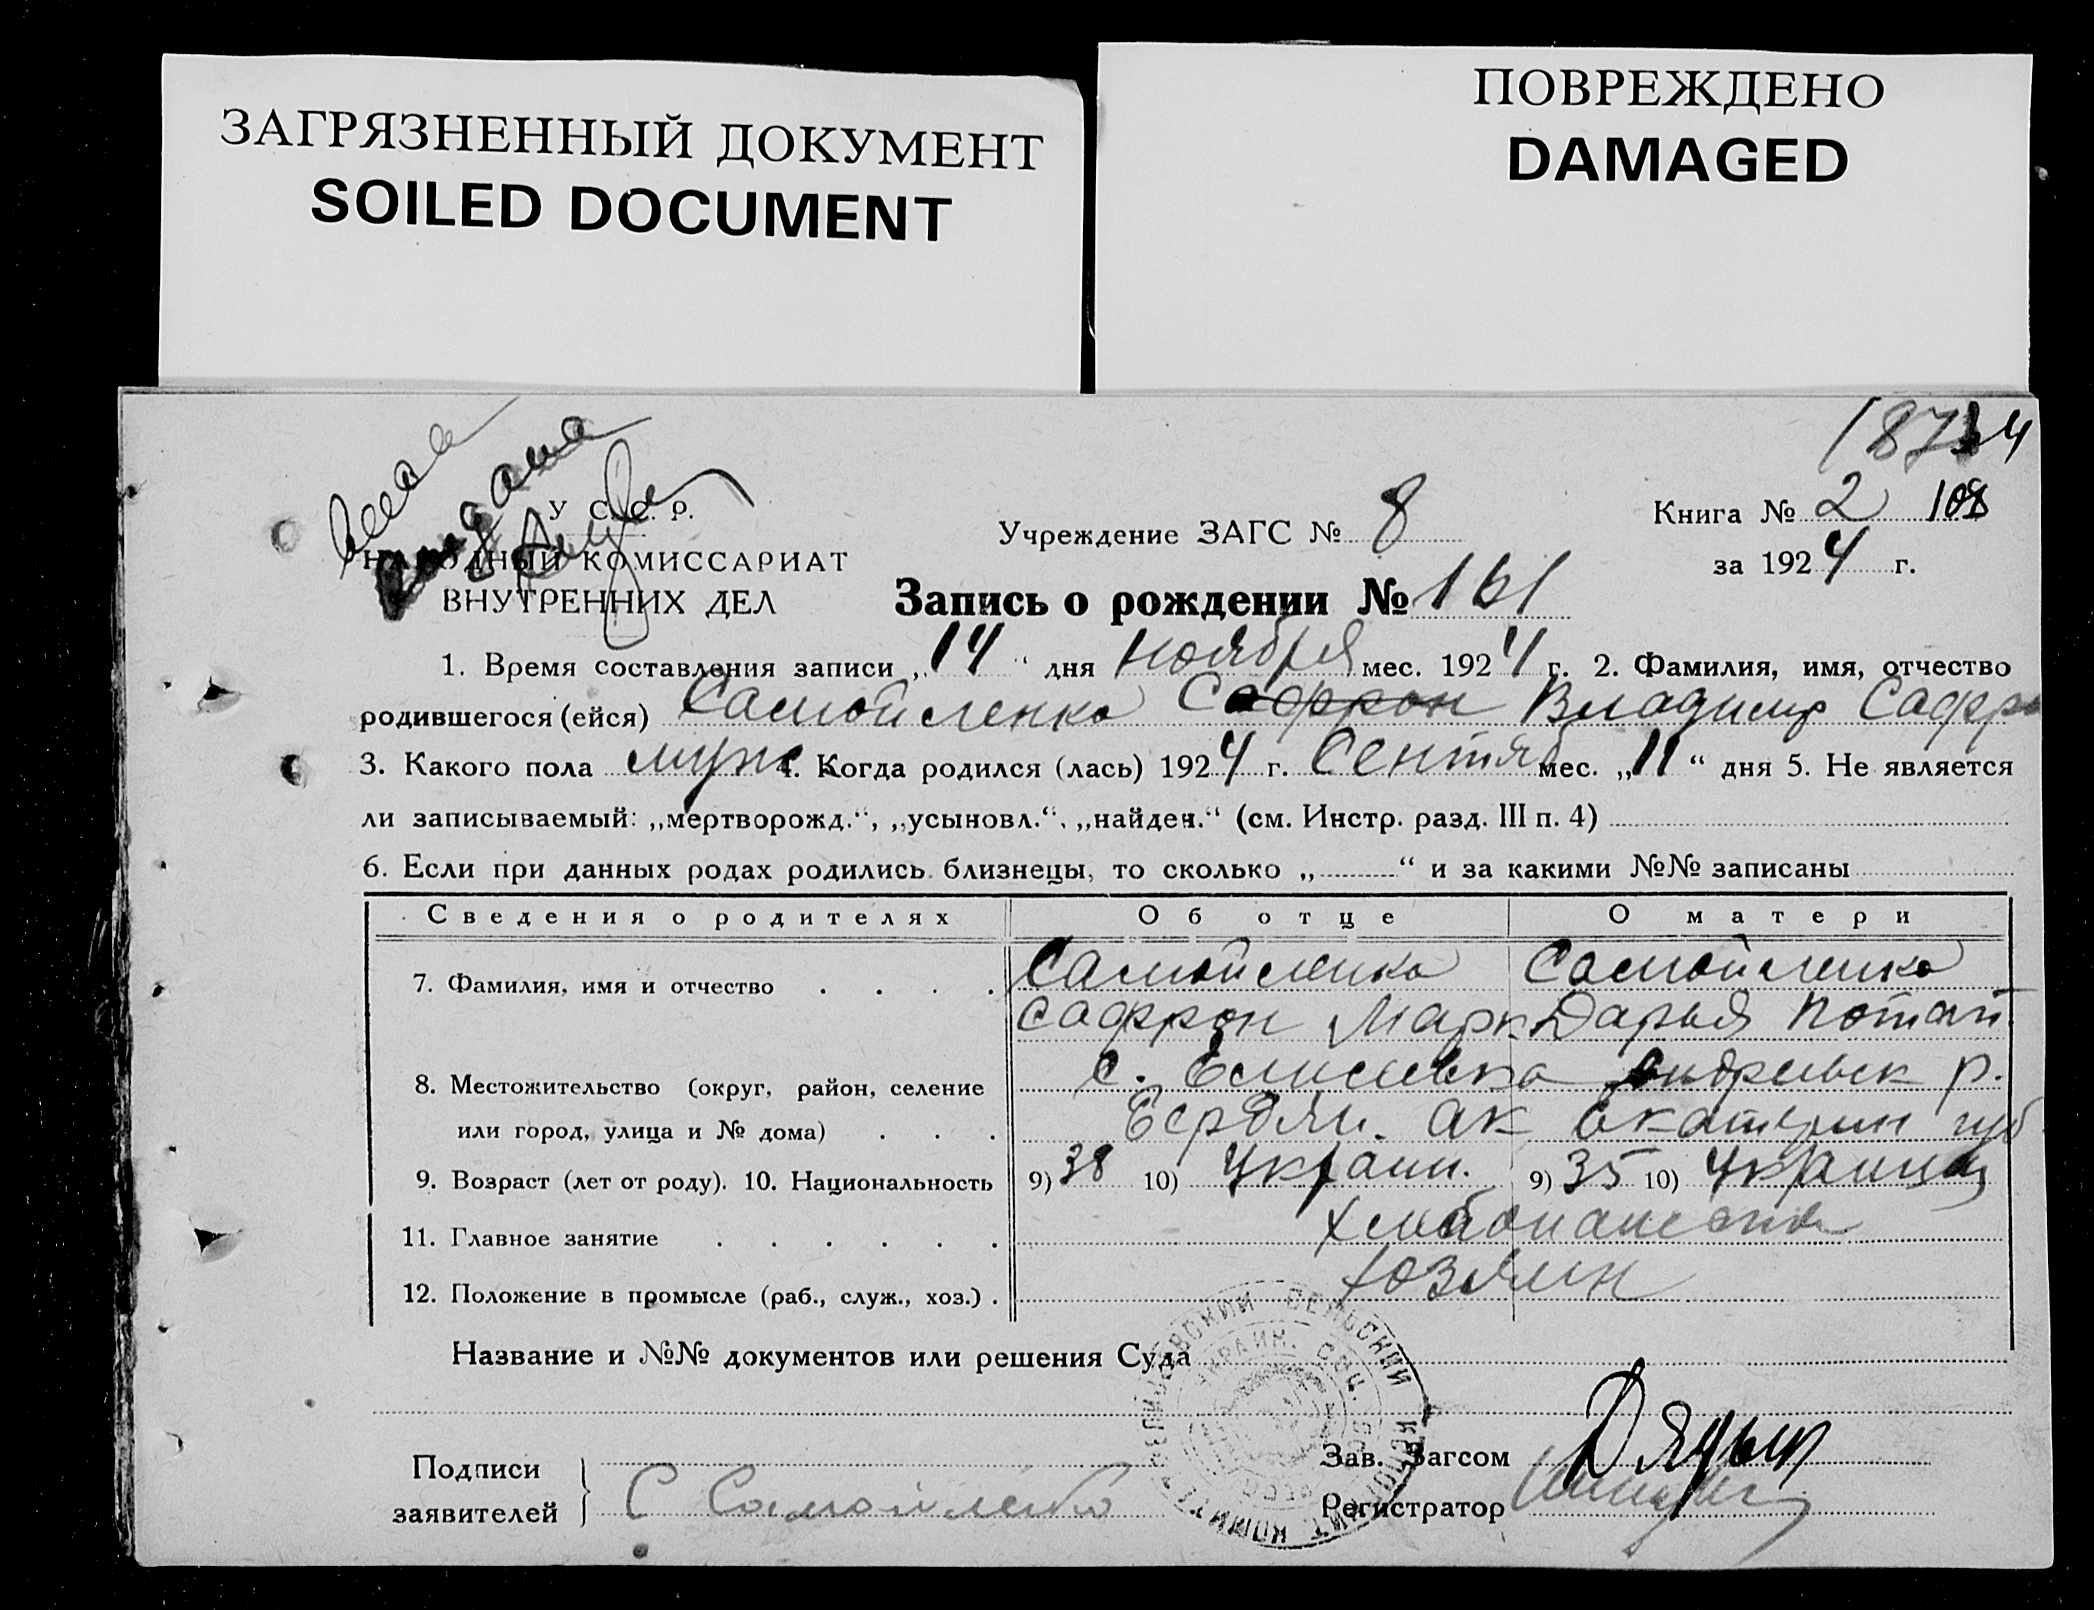 ЗАГРЯЗНЕННЫЙ ДОКУМЕНТ
SOILED DOCUMENT
ПОВРЕЖДЕНО
DAMAGED
У С. С. Р.
НАРОДНЫЙ КОМИССАРИАТ
ВНУТРЕННИХ ДЕЛ
Учреждение ЗАГС № 8
Книга № 2 108
за 1924 г.
Запись о рождении № 161
1. Время составления записи „14“ дня ноября мес. 1924 г. 2. Фамилия, имя, отчество
родившегося (ейся) Самойленко Саффрон Владимир Саффро
3. Какого пола муж 4. Когда родился (лась) 1924 г. Сентяб мес. „11“ дня 5. Не является
ли записываемый: „мертворожд.“, „усыновл.“, „найден.“ (см. Инстр. разд. III п. 4)
6. Если при данных родах родились близнецы, то сколько „ “ и за какими №№ записаны
Сведения о родителях Об отце О матери
7. Фамилия, имя и отчество Самойленко Самойленко
Саффрон Марк Дарья Потап
8. Местожительство (округ, район, селение с. Елисеевка Андреевск р.
или город, улица и № дома) Бердян. ок Екатерин губ
9. Возраст (лет от роду). 10. Национальность 9) 38 10) Украин. 9) 35 10) Украин
11. Главное занятие хлебопашество
12. Положение в промысле (раб., служ., хоз.) хозяин
Название и №№ документов или решения Суда
Подписи
заявителей С Самойленко
Зав. Загсом
Регистратор